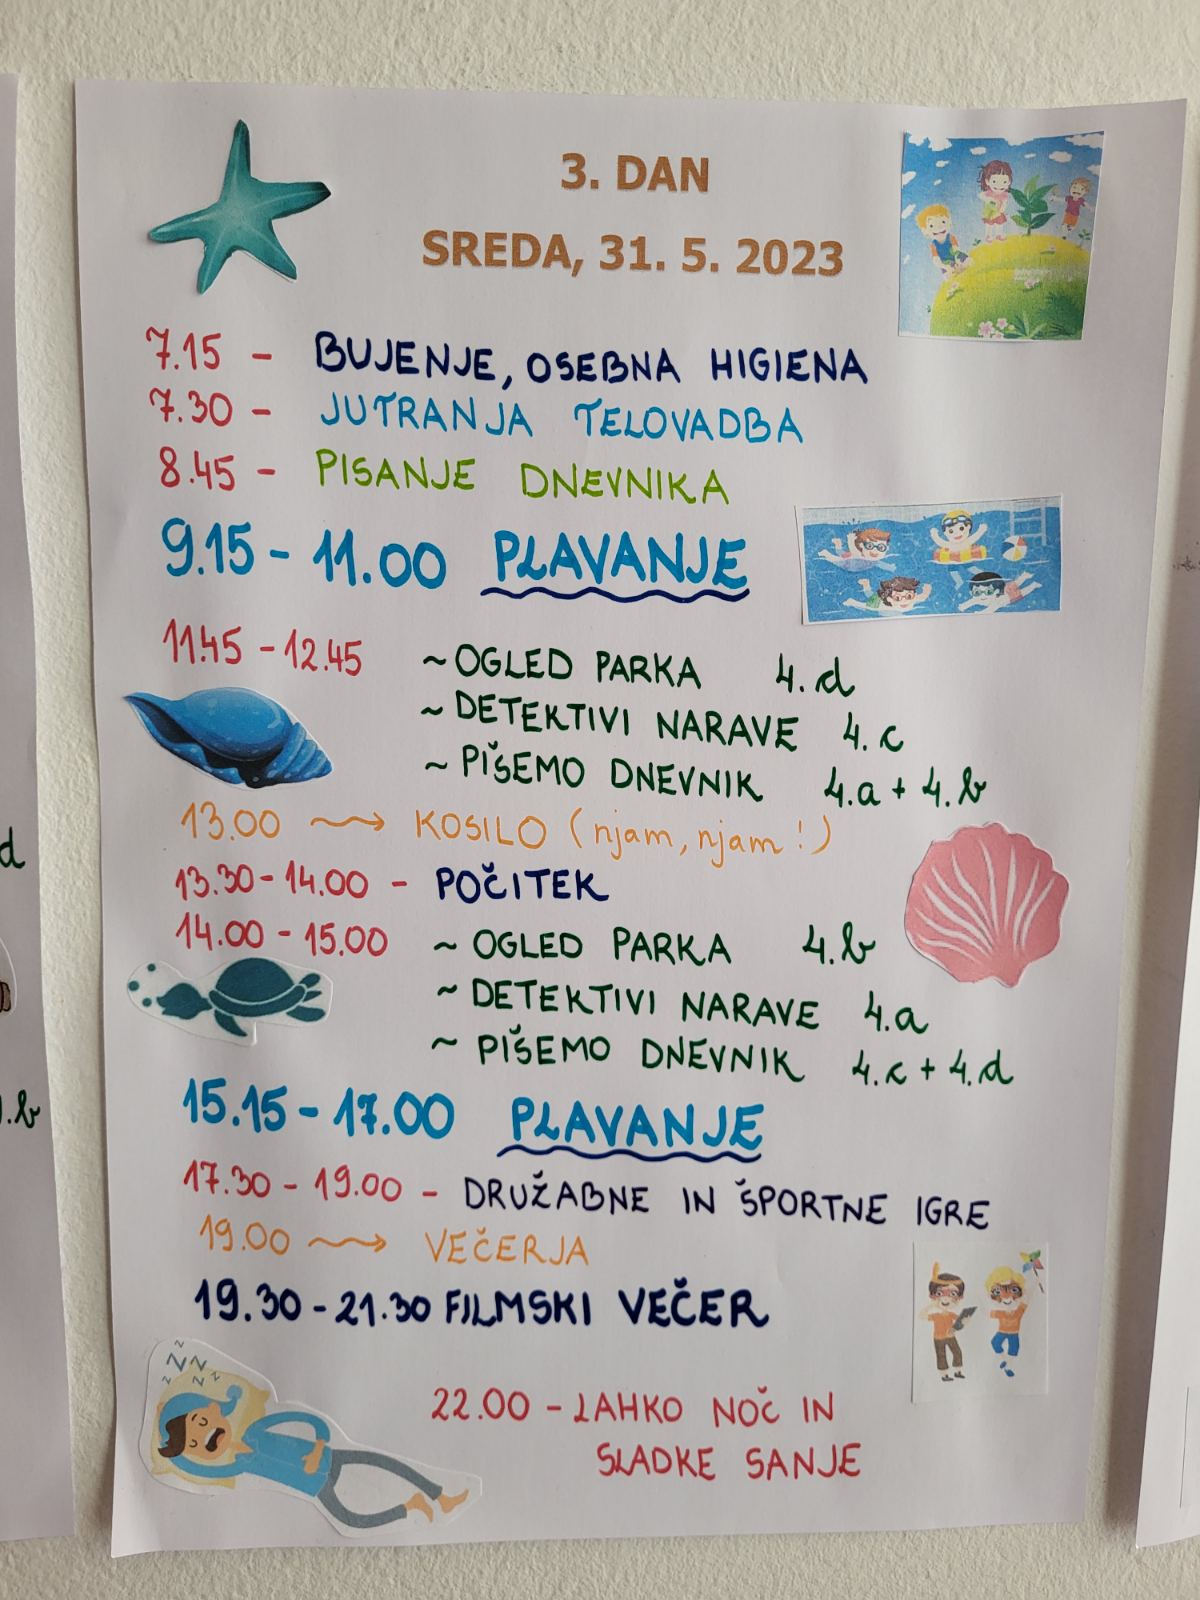 3. DAN
SREDA, 31. 5. 2023
7.15 - BUJENJE, OSEBNA HIGIENA
7.30 - JUTRANJA TELOVADBA
8.45 - PISANJE DNEVNIKA
9.15 - 11.00 PLAVANJE
11.45 - 12.45 ~ OGLED PARKA 4.d
~ DETEKTIVI NARAVE 4.c
~ PIŠEMO DNEVNIK 4.a + 4.b
13.00 → KOSILO (njam, njam!)
13.30 - 14.00 - POČITEK
14.00 - 15.00 ~ OGLED PARKA 4.b
~ DETEKTIVI NARAVE 4.a
~ PIŠEMO DNEVNIK 4.c + 4.d
15.15 - 17.00 PLAVANJE
17.30 - 19.00 - DRUŽABNE IN ŠPORTNE IGRE
19.00 → VEČERJA
19.30 - 21.30 FILMSKI VEČER
zzzz
22.00 - LAHKO NOČ IN
SLADKE SANJE
d
.b